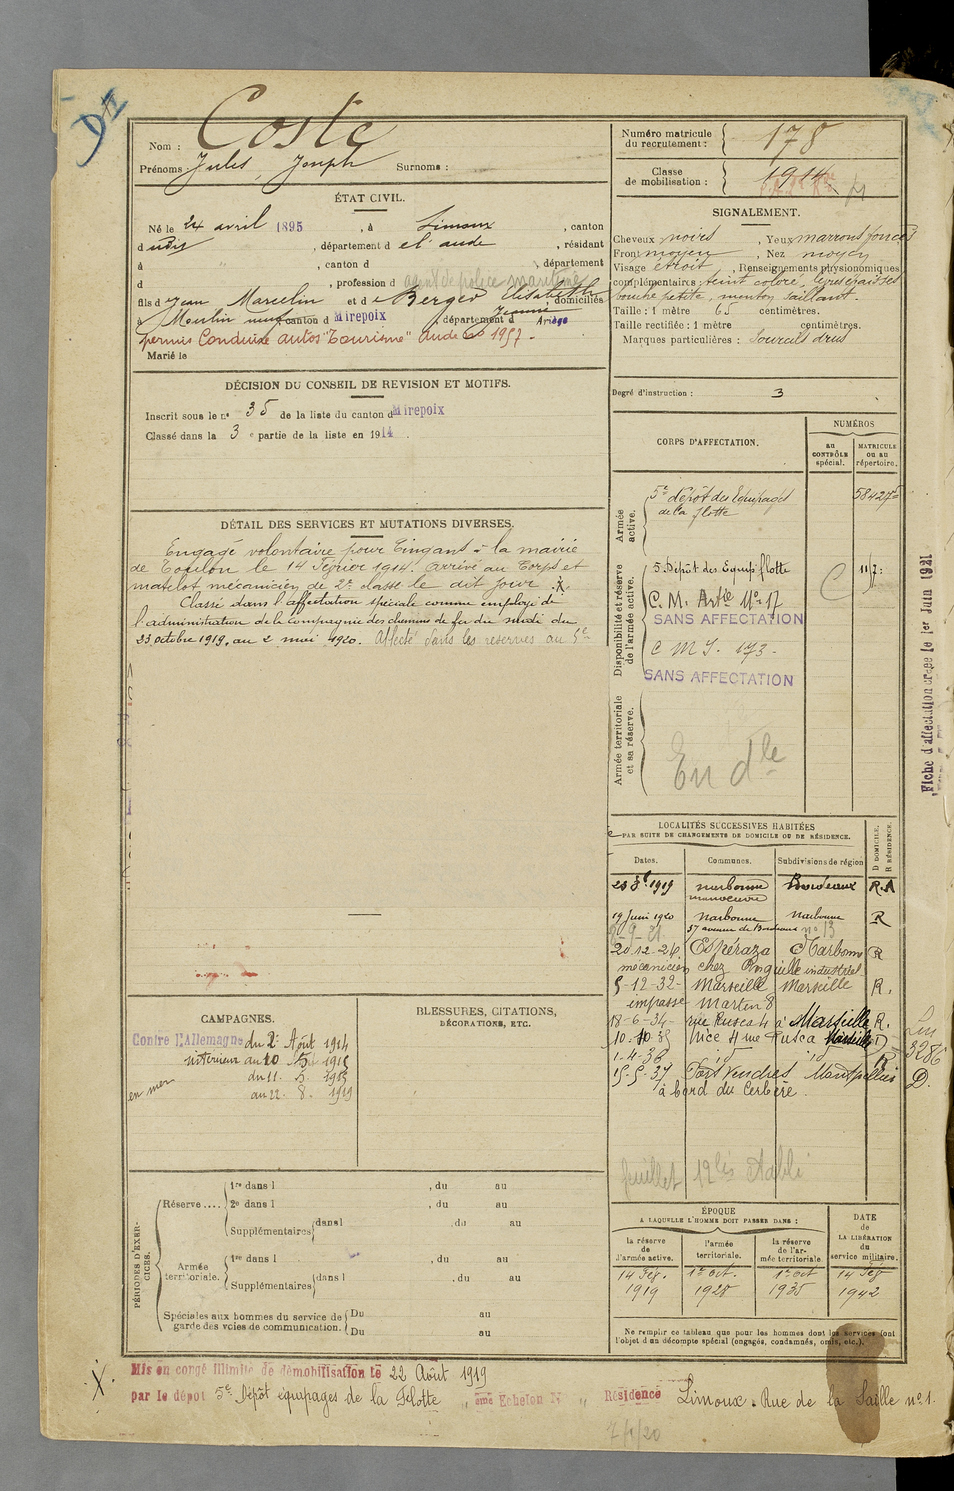 DII
Nom : Coste
Prénoms Jules, Joseph Surnoms :
Numéro matricule du recrutement : 178
Classe de mobilisation : 1914
ÉTAT CIVIL.
Né le 24 avril 1895, à Limoux, canton
d udis, département d el' aude, résidant
à , canton d , département
d , profession d agent de police maritime
fils d e Jean Marcelin et d e Berger Elisabeth Jeanne, domiciliés
à Moulin neuf canton d Mirepoix, département d Ariège
permis Conduire autos "Tourisme" Aude 1957.
Marié le
SIGNALEMENT.
Cheveux noirs, Yeux marrons foncés
Front moyen, Nez moyen
Visage étroit, Renseignements physionomiques
complémentaires : teint coloré, lèvres épaisses
bouche petite, menton saillant.
Taille : 1 mètre 65 centimètres.
Taille rectifiée : 1 mètre centimètres.
Marques particulières : Sourcils drus
Degré d'instruction : 3
DÉCISION DU CONSEIL DE REVISION ET MOTIFS.
Inscrit sous le n° 35 de la liste du canton d Mirepoix
Classé dans la 3 e partie de la liste en 1914.
DÉTAIL DES SERVICES ET MUTATIONS DIVERSES.
Engagé volontaire pour Cinq ans à la mairie
de Toulon le 14 Février 1914. Arrivé au Corps et
matelot mécanicien de 2e classe le dit jour .X.
Classé dans l'affectation spéciale comme employé de
l'administration de la Compagnie des chemins de fer du midi du
23 octobre 1919, au 2 mai 1920. Affecté dans les réserves au 5e
CORPS D'AFFECTATION.
NUMÉROS
au CONTRÔLE spécial.
MATRICULE ou au répertoire.
Armée active.
5e dépôt des Equipages de la flotte
58427-5
Disponibilité et réserve de l'armée active.
5. Dépôt des Equip. flotte
C. M. Artie No 17
SANS AFFECTATION
C M J. 173-
SANS AFFECTATION
Armée territoriale et sa réserve.
En dle
Fiche d'affectation créée le 1er Juin 1921
LOCALITÉS SUCCESSIVES HABITÉES
PAR SUITE DE CHANGEMENTS DE DOMICILE OU DE RÉSIDENCE.
Dates. Communes. Subdivisions de région
D DOMICILE. R RÉSIDENCE.
23 8bre 1919 narbonne Bordeaux R.A
manoeuvre
19 Juin 1920 Narbonne Narbonne R
37 avenue de Bordeaux no 13
20-12-26 Espéraza Narbonne R
mécanicien chez Anguille industriel
5-12-32- Marseille Marseille R.
impasse Marten 8
18-6-34- rue Rusca 4 à Marseille R.
10-10-35 Nice 4 rue Rusca Marseille D
1-4-36 id id R
15-5-37 Port Vendres Montpellier D.
à bord du Cerbère.
Lu 3286
feuillet 12 bis établi
CAMPAGNES.
Contre l'Allemagne du 2 Août 1914
intérieur au 10 5 1915
en mer du 11. 5. 1915
au 22. 8. 1919
BLESSURES, CITATIONS,
DÉCORATIONS, ETC.
PÉRIODES D'EXERCICES.
Réserve .... 1re dans l , du au
2e dans l , du au
Supplémentaires dans l , du au
Armée territoriale. 1re dans l , du au
Supplémentaires dans l , du au
Spéciales aux hommes du service de garde des voies de communication. Du au
Du au
ÉPOQUE
A LAQUELLE L'HOMME DOIT PASSER DANS :
DATE de LA LIBÉRATION du service militaire.
la réserve de l'armée active. l'armée territoriale. la réserve de l'armée territoriale.
14 Fév. 1er Oct. 1er Oct 14 Fév
1919 1928 1935 1942
Ne remplir ce tableau que pour les hommes dont les services font
l'objet d'un décompte spécial (engagés, condamnés, omis, etc.).
X. Mis en congé illimité de démobilisation le 22 Août 1919
par le dépôt 5e Dépôt équipages de la Flotte " ème Echelon N° " Résidence Limoux. Rue de la Saille no 1.
7/1/20